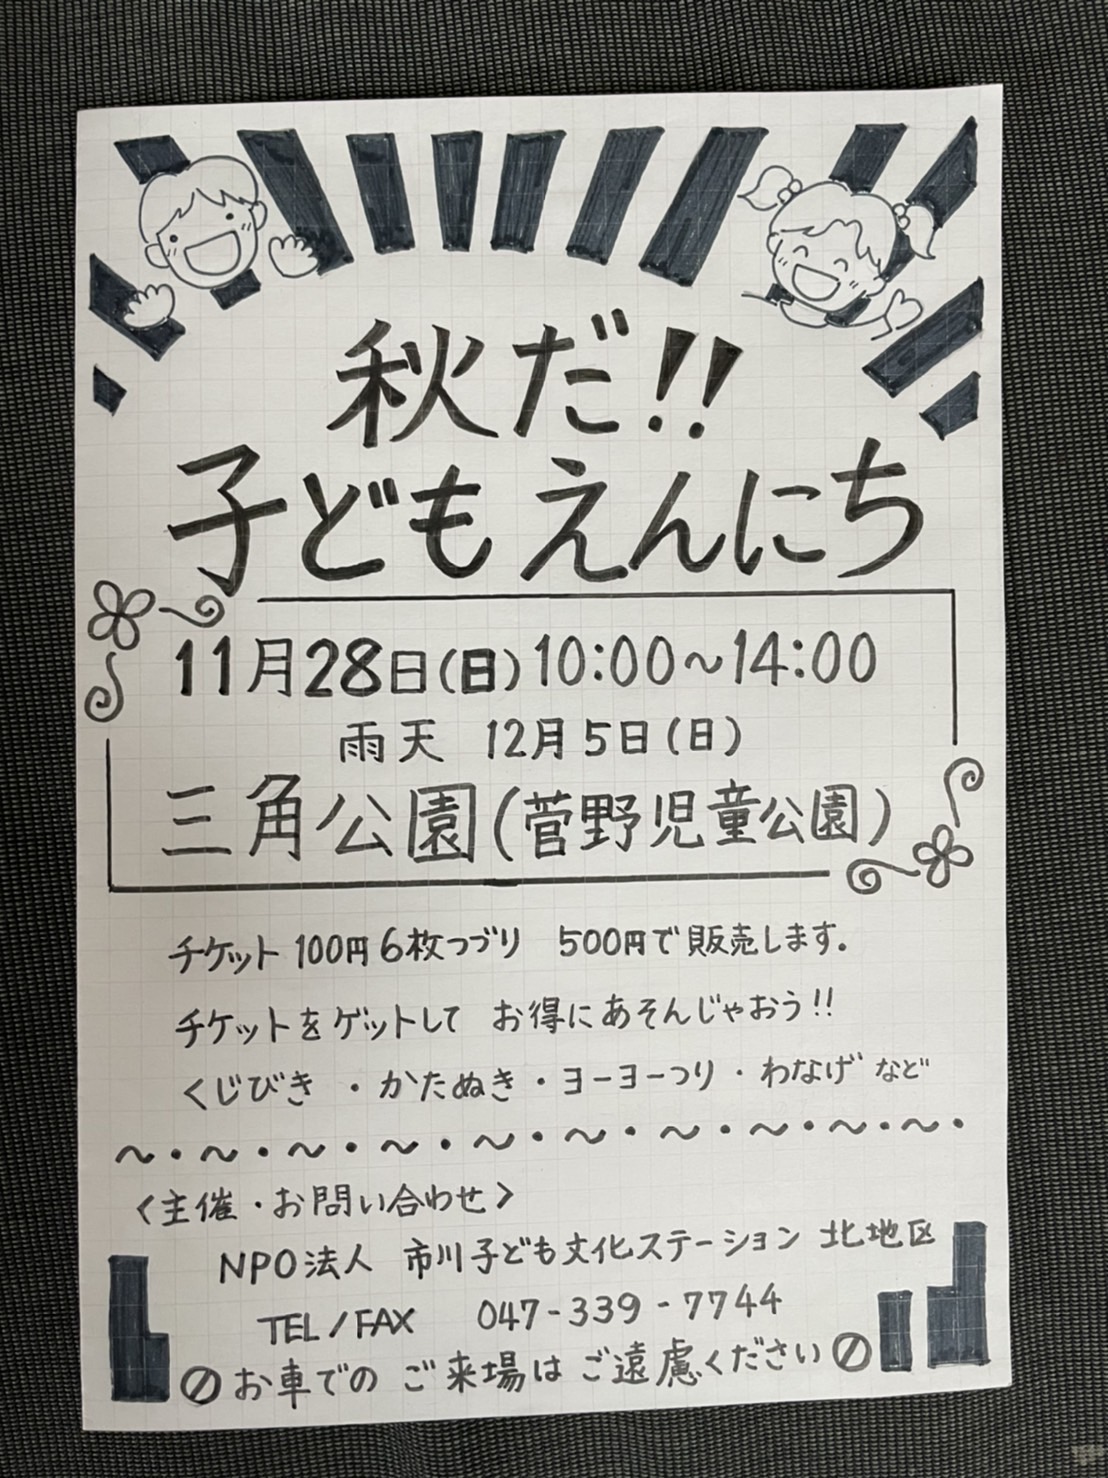 秋だ!!
子どもえんにち
11月28日(日)10:00~14:00
雨天 12月5日(日)
三角公園(菅野児童公園)
チケット100円6枚つづり 500円で販売します。
チケットをゲットして お得にあそんじゃおう!!
くじびき ・かたぬき・ヨーヨーつり・わなげなど
〈主催・お問い合わせ〉
NPO法人 市川子ども文化ステーション 北地区
TEL/FAX 047-339-7744
お車での ご来場は ご遠慮ください